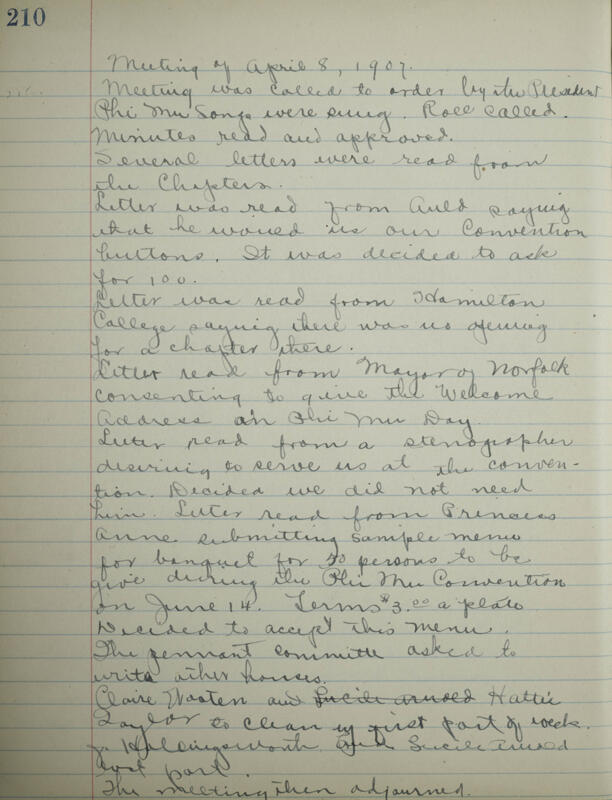 210
Meeting of April 8, 1907.
Meeting was called to order by the President
Phi Mu Songs were sung. Roll called.
Minutes read and approved.
Several letters were read from
the Chapters.
Letter was read from Auld saying
that he would us our Convention
buttons. It was decided to ask
for 100.
Letter was read from Hamilton
College saying there was no opening
for a chapter there.
Letter read from Mayor of Norfolk
consenting to give the Welcome
Address on Phi Mu Day.
Letter read from a stenographer
desiring to serve us at the conven-
tion. Decided we did not need
him. Letter read from Princess
Anne submitting sample menu
for banquet for 50 persons to be
give during the Phi Mu Convention
on June 14. Terms $3.00 a plate
Decided to accept this menu.
The pennant committe asked to
write other houses.
Claire Wooten and Lucile Arnold Hattie
Taylor to clean up first part of week.
J. Hollingsworth and Lucile Arnold
last part.
The meeting then adjourned.